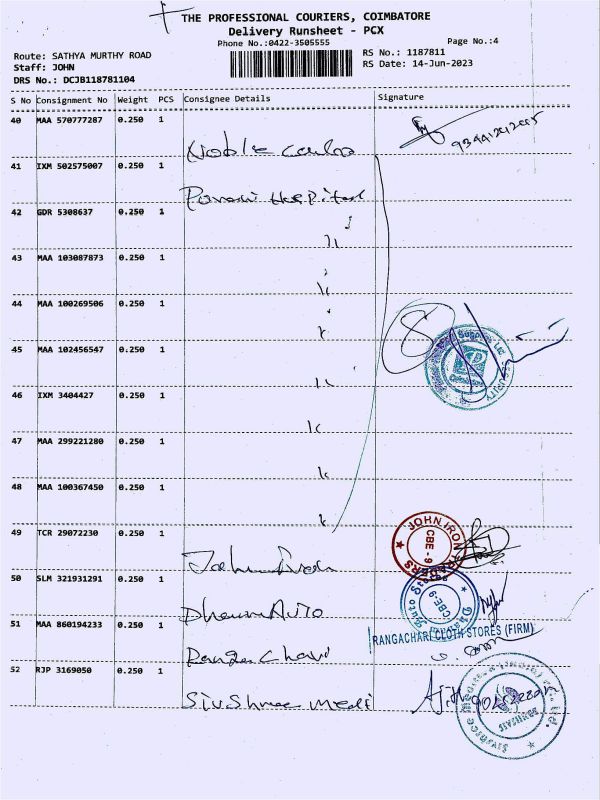 THE PROFESSIONAL COURIERS, COIMBATORE
Delivery Runsheet - PCX
Phone No.:0422-3505555
Page No.:4
Route: SATHYA MURTHY ROAD
RS No.: 1187811
Staff: JOHN
RS Date: 14-Jun-2023
DRS No.: DCJB118781104
S No Consignment No Weight PCS Consignee Details Signature
40 MAA 570777287 0.250 1
Noble
41 IXM 502575007 0.250 1
Hospital
42 GDR 5308637 0.250 1
43 MAA 103087873 0.250 1
44 MAA 100269506 0.250 1
8
45 MAA 102456547 0.250 1
46 IXM 3404427 0.250 1
47 MAA 299221280 0.250 1
48 MAA 100367450 0.250 1
49 TCR 29072230 0.250 1
JOHN IRON TRADERS
CBE - 9
John
50 SLM 321931291 0.250 1
CBE-9
Auto
51 MAA 860194233 0.250 1
RANGACHARI CLOTH STORES (FIRM)
Ranga Chari
52 RJP 3169050 0.250 1
Siv Shree Medi